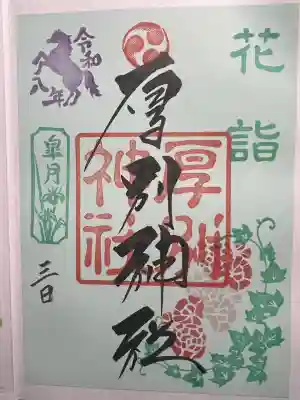 花詣
厚別神社
厚別
神社
令和
八年
皐月
三日